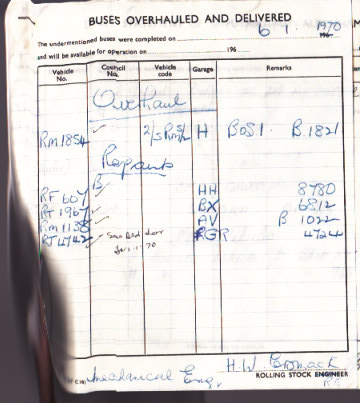 BUSES OVERHAULED AND DELIVERED
6 1 1970
The undermentioned buses were completed on
and will be available for operation on 196
Vehicle No. Council No. Vehicle code Garage Remarks
Overhaul
RM 1854 H BoS1. B 1821
Repaints
RF 607 HH 8780
RT 1967 BX 6812
RM 1138 AV B 1022
RT 4742 GR 4724
H.W.
Mechanical Eng. ROLLING STOCK ENGINEER